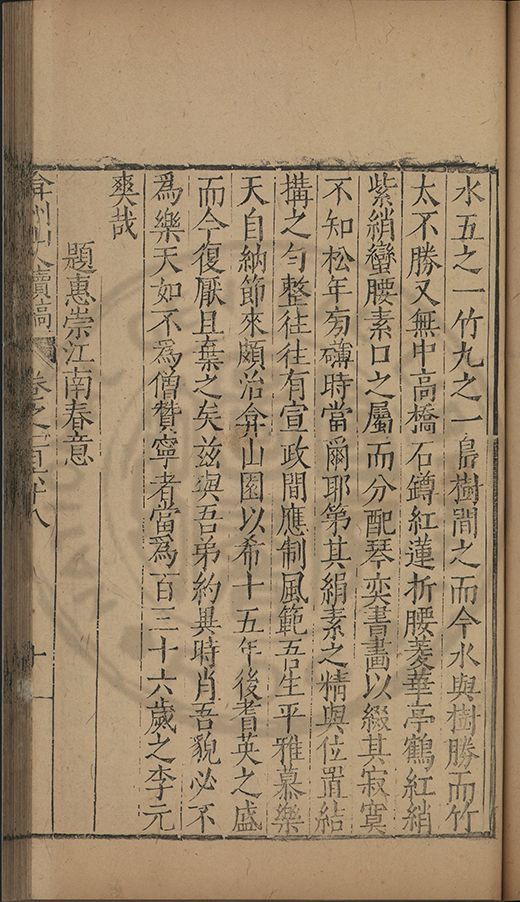 水五之一竹九之一島樹間之而今水與樹勝而竹
太不勝又無中高橋石罇紅蓮折腰菱華亭鶴紅綃
紫綃蠻腰素口之屬而分配琴奕書畫以綴其寂寞
不知松年旁礴時當爾耶第其絹素之精與位置結
搆之勻整往往有宣政間應制風範吾生平雅慕樂
天自納節來頗治弇山園以希十五年後耆英之盛
而今復厭且棄之矣茲與吾弟約異時肖吾貌必不
為樂天如不為僧贊寧者當為一百三十六歲之李元
爽哉
題惠崇江南春意
弇州山人續稿 卷之一百六十八 十一